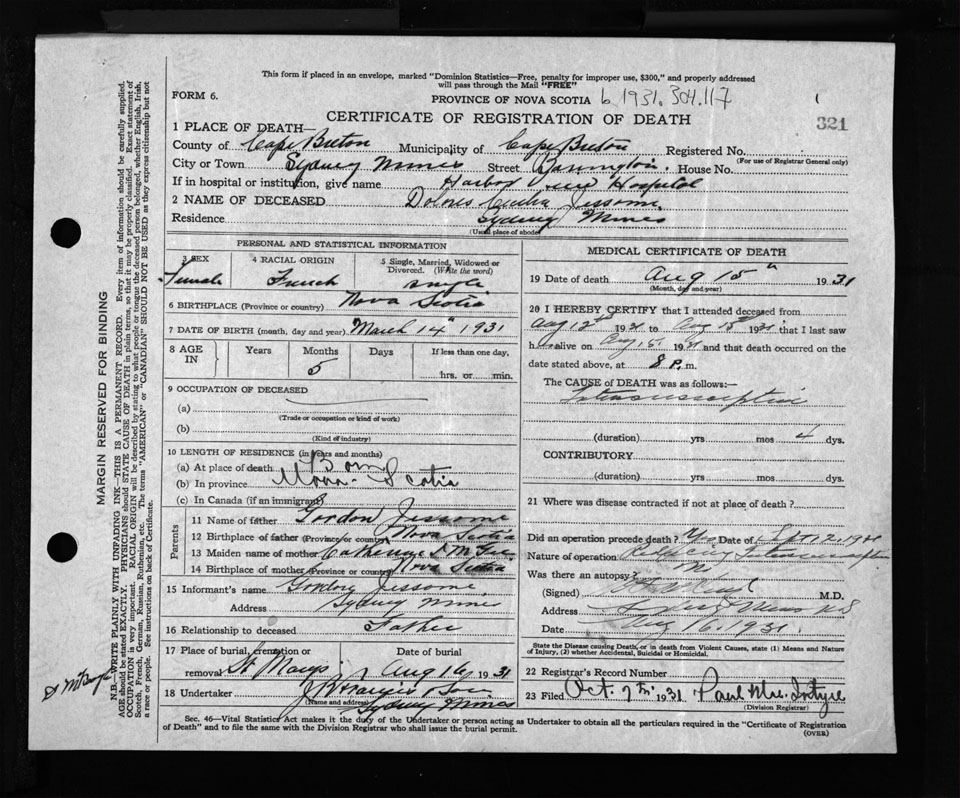 This form if placed in an envelope, marked "Dominion Statistics—Free, penalty for improper use, $300," and properly addressed
will pass through the Mail "FREE"
FORM 6.
PROVINCE OF NOVA SCOTIA 6 1931. 304.117
CERTIFICATE OF REGISTRATION OF DEATH
321
1 PLACE OF DEATH—
County of Cape Breton Municipality of Cape Breton Registered No.
(For use of Registrar General only)
City or Town Sydney Mines Street House No.
If in hospital or institution, give name Harbor View Hospital
2 NAME OF DECEASED Dolores Jessome
Residence Sydney Mines
(Usual place of abode)
PERSONAL AND STATISTICAL INFORMATION
3 SEX 4 RACIAL ORIGIN 5 Single, Married, Widowed or
Divorced. (Write the word)
Female French Single
6 BIRTHPLACE (Province or country) Nova Scotia
7 DATE OF BIRTH (month, day and year) March 14th 1931
8 AGE IN Years Months Days If less than one day,
5 hrs. or min.
9 OCCUPATION OF DECEASED
(a)
(Trade or occupation or kind of work)
(b)
(Kind of industry)
10 LENGTH OF RESIDENCE (in years and months)
(a) At place of death Born
(b) In province Nova Scotia
(c) In Canada (if an immigrant)
Parents
11 Name of father Gordon Jessome
12 Birthplace of father (Province or country) Nova Scotia
13 Maiden name of mother Catherine
14 Birthplace of mother (Province or country) Nova Scotia
15 Informant's name Gordon Jessome
Address Sydney Mines
16 Relationship to deceased Father
17 Place of burial, cremation or removal Date of burial
St Marys Aug 16, 1931
18 Undertaker
(Name and address) Sydney Mines
MEDICAL CERTIFICATE OF DEATH
19 Date of death Aug 15th 1931
(Month, day and year)
20 I HEREBY CERTIFY that I attended deceased from
Aug 12th 1931 to Aug 15th 1931 that I last saw
h alive on Aug 15 1931 and that death occurred on the
date stated above, at 8 P. m.
The CAUSE of DEATH was as follows:—
Intussusception
(duration) yrs mos 4 dys.
CONTRIBUTORY
(duration) yrs mos dys.
21 Where was disease contracted if not at place of death?
Did an operation precede death? Yes Date of
Nature of operation Reducing Intussusception
Was there an autopsy? No
(Signed) M.D.
Address Sydney Mines N S
Date Aug 16, 1931.
State the Disease causing Death, or in death from Violent Causes, state (1) Means and Nature
of Injury, (2) whether Accidental, Suicidal or Homicidal.
22 Registrar's Record Number
23 Filed Oct. 7th 1931
(Division Registrar)
Sec. 46—Vital Statistics Act makes it the duty of the Undertaker or person acting as Undertaker to obtain all the particulars required in the "Certificate of Registration
of Death" and to file the same with the Division Registrar who shall issue the burial permit.
(OVER)
MARGIN RESERVED FOR BINDING
N.B.—WRITE PLAINLY WITH UNFADING INK—THIS IS A PERMANENT RECORD. Every item of information should be carefully supplied.
AGE should be stated EXACTLY. PHYSICIANS should STATE CAUSE OF DEATH in plain terms, so that it may be properly classified. Exact statement of
OCCUPATION is very important. RACIAL ORIGIN will be described by stating to what people or tongue the deceased person belonged, whether English, Irish,
Scotch, French, German, Russian, Ruthenian, etc. The terms "AMERICAN" or "CANADIAN" SHOULD NOT BE USED as they express citizenship but not
a race or people. See instructions on back of Certificate.